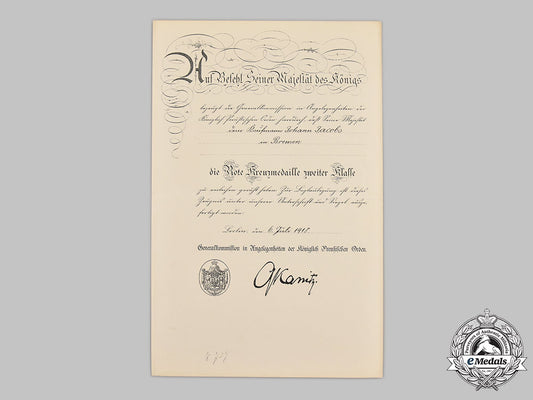 Auf Befehl Seiner Majestät des Königs
bezeugt die Generalkommission in Angelegenheiten der
Königlich Preußischen Orden hierdurch daß Seine Majestät
dem Kaufmann Johann Jacobs
in Bremen
die Rote Kreuzmedaille zweiter Klasse
zu verleihen geruht haben. Zur Beglaubigung ist dieses
Zeugnis unter unserer Unterschrift und Siegel ausge-
fertigt worden.
Berlin, den 6. Juli 1918.
Generalkommission in Angelegenheiten der Königlich Preussischen Orden.
eMedals